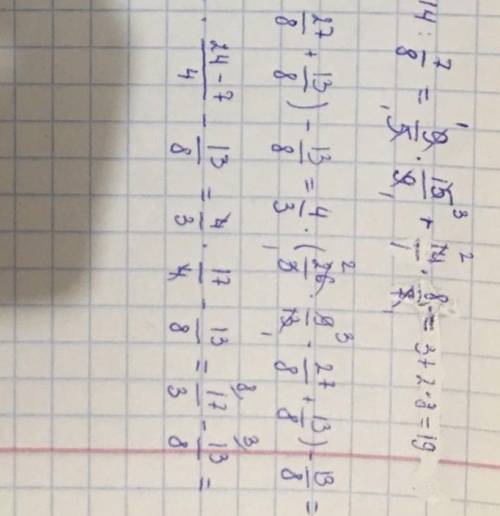 14 : 7/8 = 9/5 · 15/9 + 14/1 · 8/7 = 3 + 2 · 8 = 19
27/8 + 13/8) - 13/8 = 4/3 · (26/3 · 9/13 - 27/8 + 13/8) - 13/8 =
· 24-7/4 - 13/8 = 4/3 · 17/4 - 13/8 = 17/3 - 13/8 =